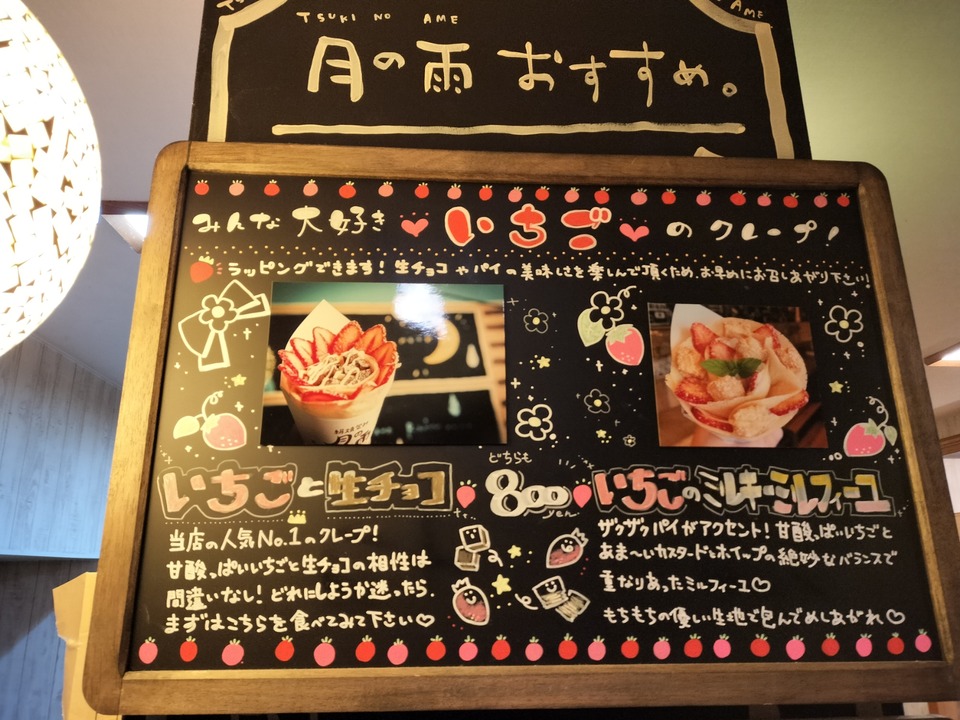 TSUKI NO AME
月の雨 おすすめ。
みんな大好き いちご のクレープ!
ラッピングできます! 生チョコやパイの美味しさを楽しんで頂くため、お早めにお召しあがり下さい!
いちごと生チョコ
どちらも
800 yen
いちごのミルキーミルフィーユ
当店の人気No.1のクレープ!
甘酸っぱいいちごと生チョコの相性は
間違いなし! どれにしようか迷ったら、
まずはこちらを食べてみて下さい♡
ザクザクパイがアクセント! 甘酸っぱいいちごと
あま〜いカスタードとホイップの絶妙なバランスで
重なりあったミルフィーユ♡
もちもちの優しい生地で包んでめしあがれ♡